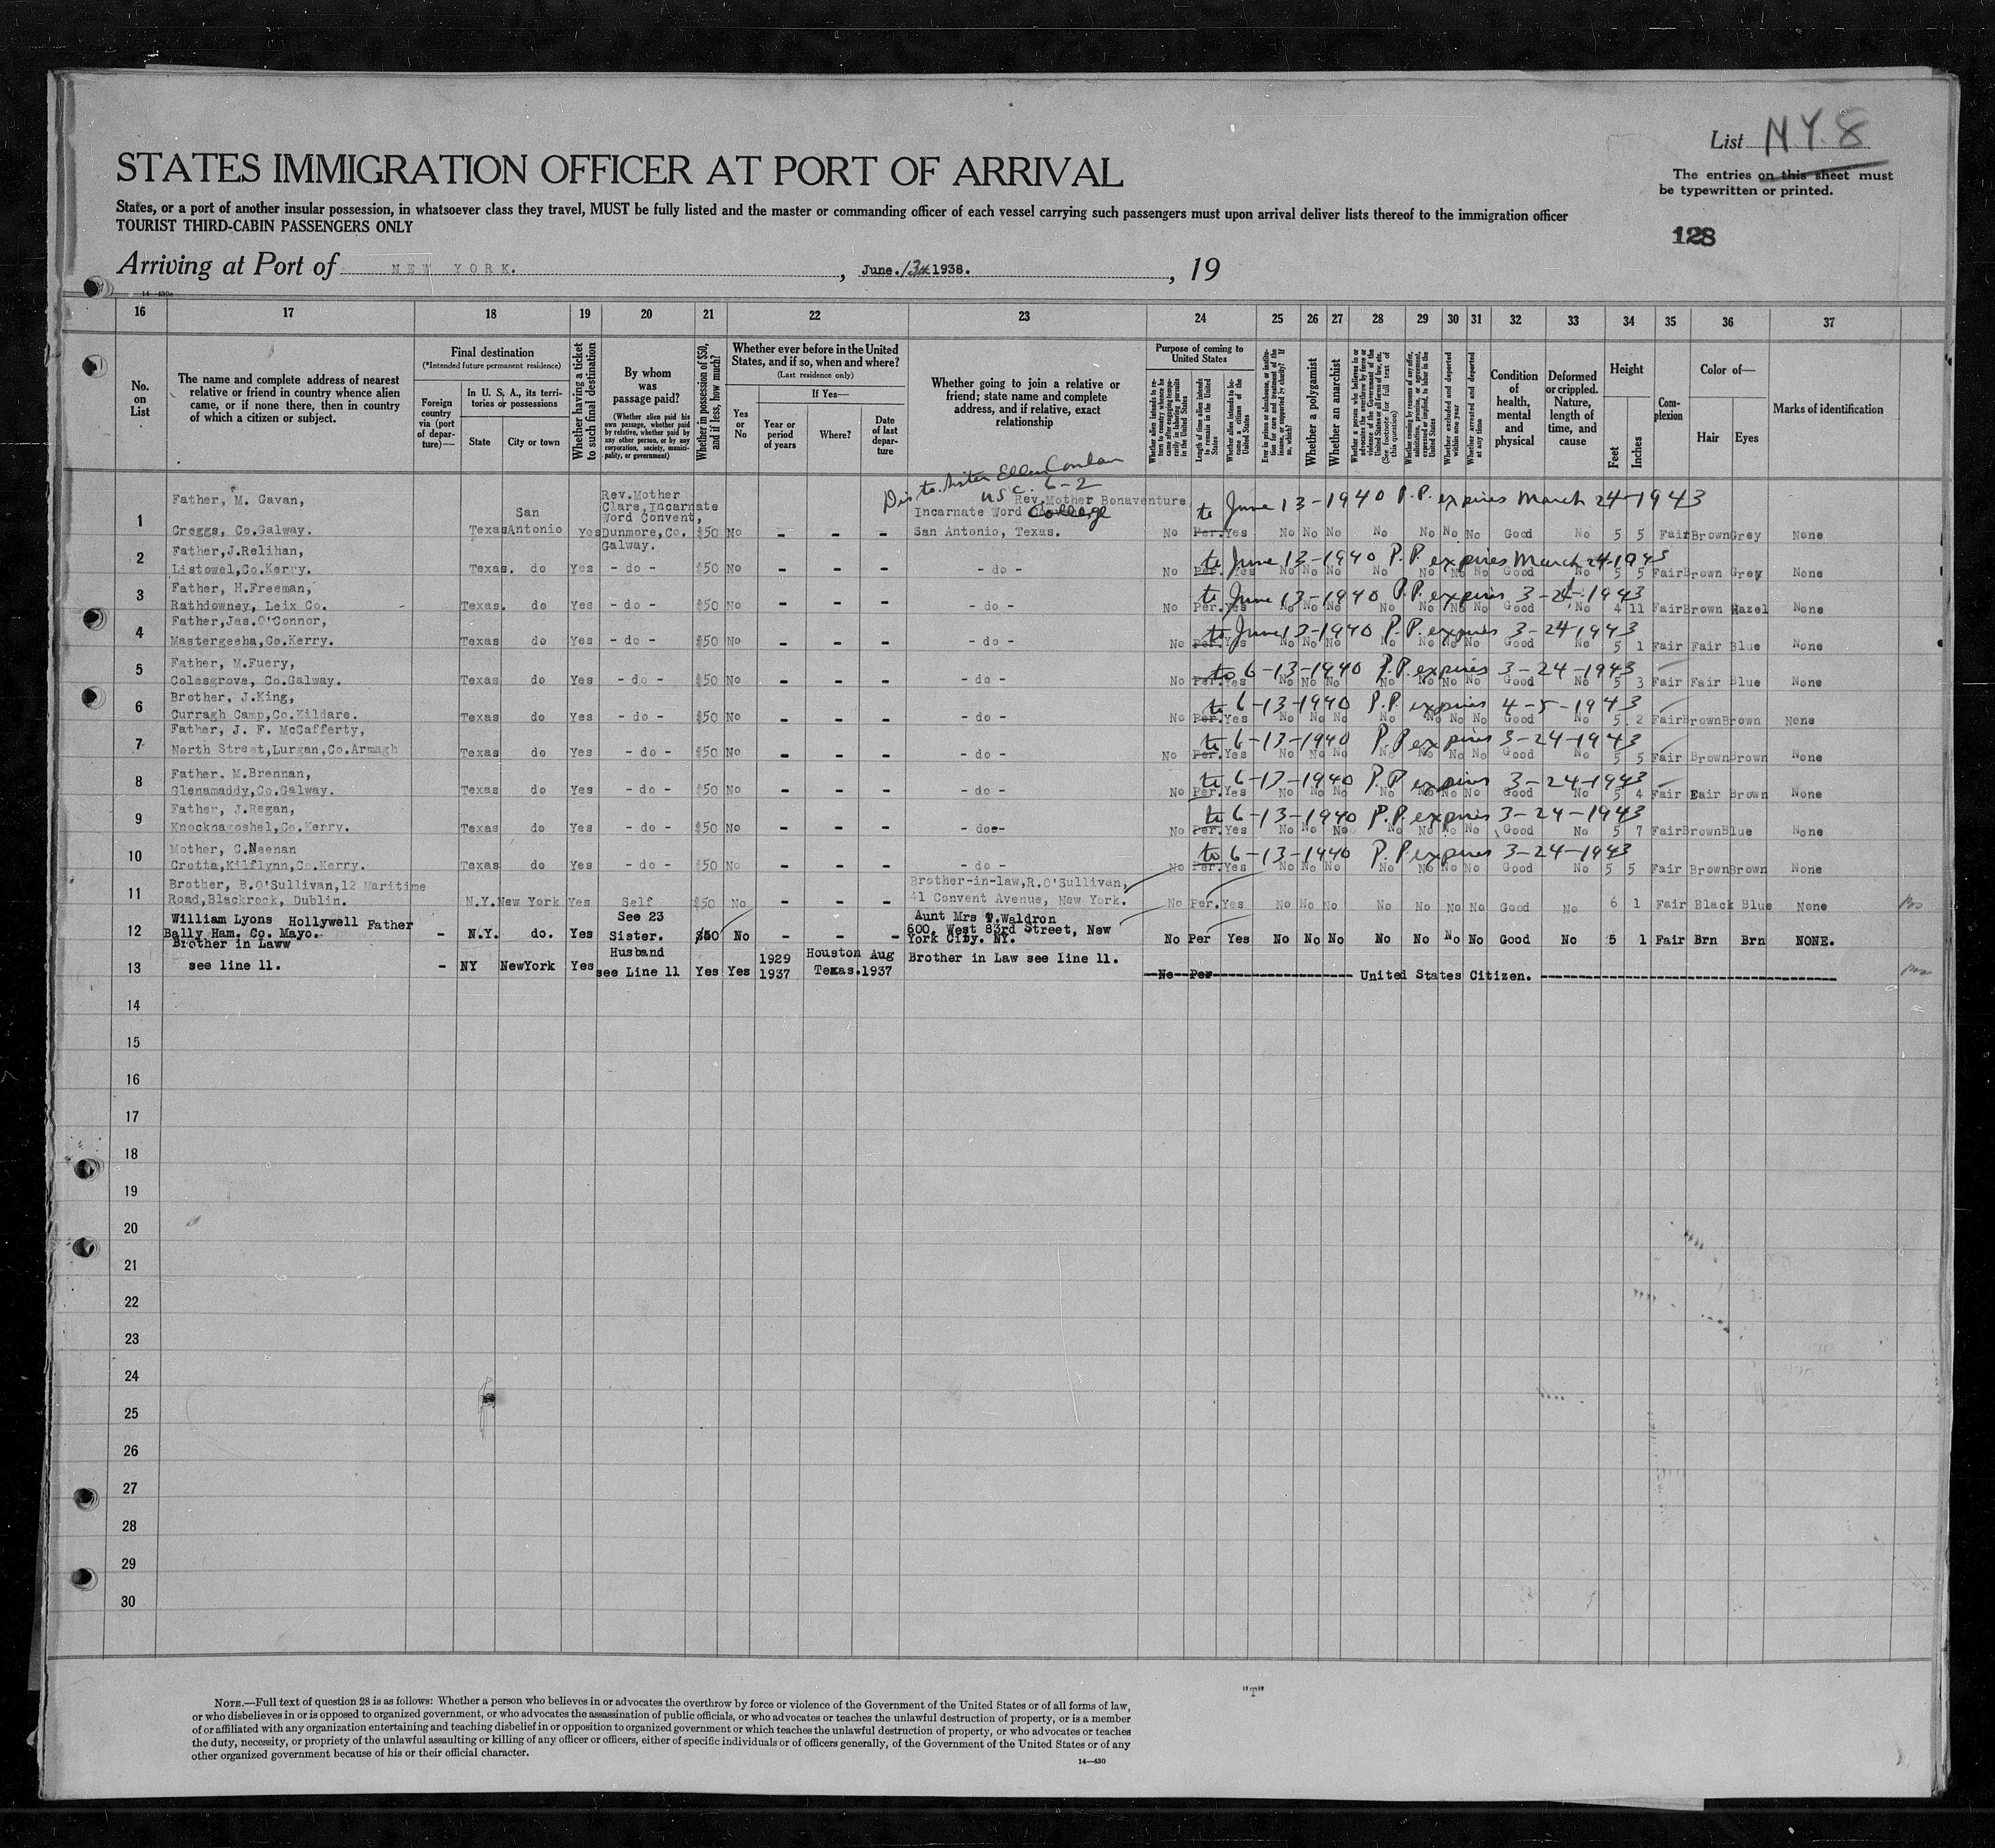 List N.Y. 8
STATES IMMIGRATION OFFICER AT PORT OF ARRIVAL
The entries on this sheet must
be typewritten or printed.
States, or a port of another insular possession, in whatsoever class they travel, MUST be fully listed and the master or commanding officer of each vessel carrying such passengers must upon arrival deliver lists thereof to the immigration officer
TOURIST THIRD-CABIN PASSENGERS ONLY
128
Arriving at Port of NEW YORK. , June. 13th 1938. , 19
16 17 18 19 20 21 22 23 24 25 26 27 28 29 30 31 32 33 34 35 36 37
No. on List
The name and complete address of nearest relative or friend in country whence alien came, or if none there, then in country of which a citizen or subject.
Final destination
(*Intended future permanent residence)
Foreign country via (port of departure)—
In U. S. A., its territories or possessions
State City or town
Whether having a ticket to such final destination
By whom was passage paid?
(Whether alien paid his own passage, whether paid by relative, whether paid by any other person, or by any corporation, society, municipality, or government)
Whether in possession of $50, and if less, how much?
Whether ever before in the United States, and if so, when and where?
(Last residence only)
Yes or No
If Yes—
Year or period of years Where? Date of last departure
Whether going to join a relative or friend; state name and complete address, and if relative, exact relationship
Purpose of coming to United States
Whether alien intends to return to country whence he came after engaging temporarily in laboring pursuits in the United States
Length of time alien intends to remain in the United States
Whether alien intends to become a citizen of the United States
Ever in prison or almshouse or institution for care and treatment of the insane, or supported by charity? If so, which?
Whether a polygamist
Whether an anarchist
Whether a person who believes in or advocates the overthrow by force or violence of the Government of the United States or all forms of law, etc. (See footnote for full text of this question)
Whether coming by reason of any offer, solicitation, promise, or agreement, expressed or implied, to labor in the United States
Whether excluded and deported within one year
Whether arrested and deported at any time
Condition of health, mental and physical
Deformed or crippled. Nature, length of time, and cause
Height
Feet Inches
Complexion
Color of—
Hair Eyes
Marks of identification
Dis to Sister Ellen Conlan
USC. 6-2
1 Father, M. Gavan,
Creggs, Co.Galway. Texas San Antonio Yes Rev.Mother Clare,Incarnate Word Convent, Dunmore,Co. Galway. $50 No - - - Rev.Mother Bonaventure Incarnate Word College San Antonio, Texas. No Per. Yes No No No No No No No Good No 5 5 Fair Brown Grey None
to June 13-1940 P.P. expires March 24-1943
2 Father,J.Relihan,
Listowel,Co.Kerry. Texas. do Yes - do - $50 No - - - - do - No Per. Yes No No No No No No No Good No 5 5 Fair Brown Grey None
to June 13-1940 P.P. expires March 24-1943
3 Father, H.Freeman,
Rathdowney, Leix Co. Texas. do Yes - do - $50 No - - - - do - No Per. Yes No No No No No No No Good No 4 11 Fair Brown Hazel None
to June 13-1940 P.P. expires 3-24-1943
4 Father,Jas.O'Connor,
Mastergeeha,Co.Kerry. Texas do Yes - do - $50 No - - - - do - No Per. Yes No No No No No No No Good No 5 1 Fair Fair Blue None
to June 13-1940 P.P. expires 3-24-1943
5 Father, M.Fuery,
Colesgrove, Co.Galway. Texas do Yes - do - $50 No - - - - do - No Per. Yes No No No No No No No Good No 5 3 Fair Fair Blue None
to 6-13-1940 P.P. expires 3-24-1943
6 Brother, J.King,
Curragh Camp,Co.Kildare. Texas do Yes - do - $50 No - - - - do - No Per. Yes No No No No No No No Good No 5 2 Fair Brown Brown None
to 6-13-1940 P.P. expires 4-5-1943
7 Father, J. F. McCafferty,
North Street,Lurgan,Co.Armagh Texas do Yes - do - $50 No - - - - do - No Per. Yes No No No No No No No Good No 5 5 Fair Brown Brown None
to 6-13-1940 P.P. expires 3-24-1943
8 Father. M.Brennan,
Glenamaddy,Co.Galway. Texas do Yes - do - $50 No - - - - do - No Per. Yes No No No No No No No Good No 5 4 Fair Fair Brown None
to 6-13-1940 P.P. expires 3-24-1943
9 Father, J.Regan,
Knocknagoshel,Co.Kerry. Texas do Yes - do - $50 No - - - - do - No Per. Yes No No No No No No No Good No 5 7 Fair Brown Blue None
to 6-13-1940 P.P. expires 3-24-1943
10 Mother, C.Neenan
Cretta,Kilflynn,Co.Kerry. Texas do Yes - do - $50 No - - - - do - No Per. Yes No No No No No No No Good No 5 5 Fair Brown Brown None
to 6-13-1940 P.P. expires 3-24-1943
11 Brother, B.O'Sullivan,12 Maritime
Road,Blackrock, Dublin. N.Y. New York Yes Self $50 No - - - Brother-in-law,R.O'Sullivan, 41 Convent Avenue, New York. No Per. Yes No No No No No No No Good No 6 1 Fair Black Blue None
12 William Lyons Hollywell Father
Bally Ham. Co. Mayo. - N.Y. do. Yes See 23 Sister. $50 No - - - Aunt Mrs T.Waldron 600, West 83rd Street, New York City. NY. No Per Yes No No No No No No No Good No 5 1 Fair Brn Brn NONE.
13 Brother in Laww
see line 11. - NY NewYork Yes Husband see Line 11 Yes Yes 1929 1937 Houston Texas. Aug 1937 Brother in Law see line 11. No Per United States Citizen.
14
15
16
17
18
19
20
21
22
23
24
25
26
27
28
29
30
NOTE.—Full text of question 28 is as follows: Whether a person who believes in or advocates the overthrow by force or violence of the Government of the United States or of all forms of law,
or who disbelieves in or is opposed to organized government, or who advocates the assassination of public officials, or who advocates or teaches the unlawful destruction of property, or is a member
of or affiliated with any organization entertaining and teaching disbelief in or opposition to organized government or which teaches the unlawful destruction of property, or who advocates or teaches
the duty, necessity, or propriety of the unlawful assaulting or killing of any officer or officers, either of specific individuals or of officers generally, of the Government of the United States or of any
other organized government because of his or their official character.
14—430
"T"